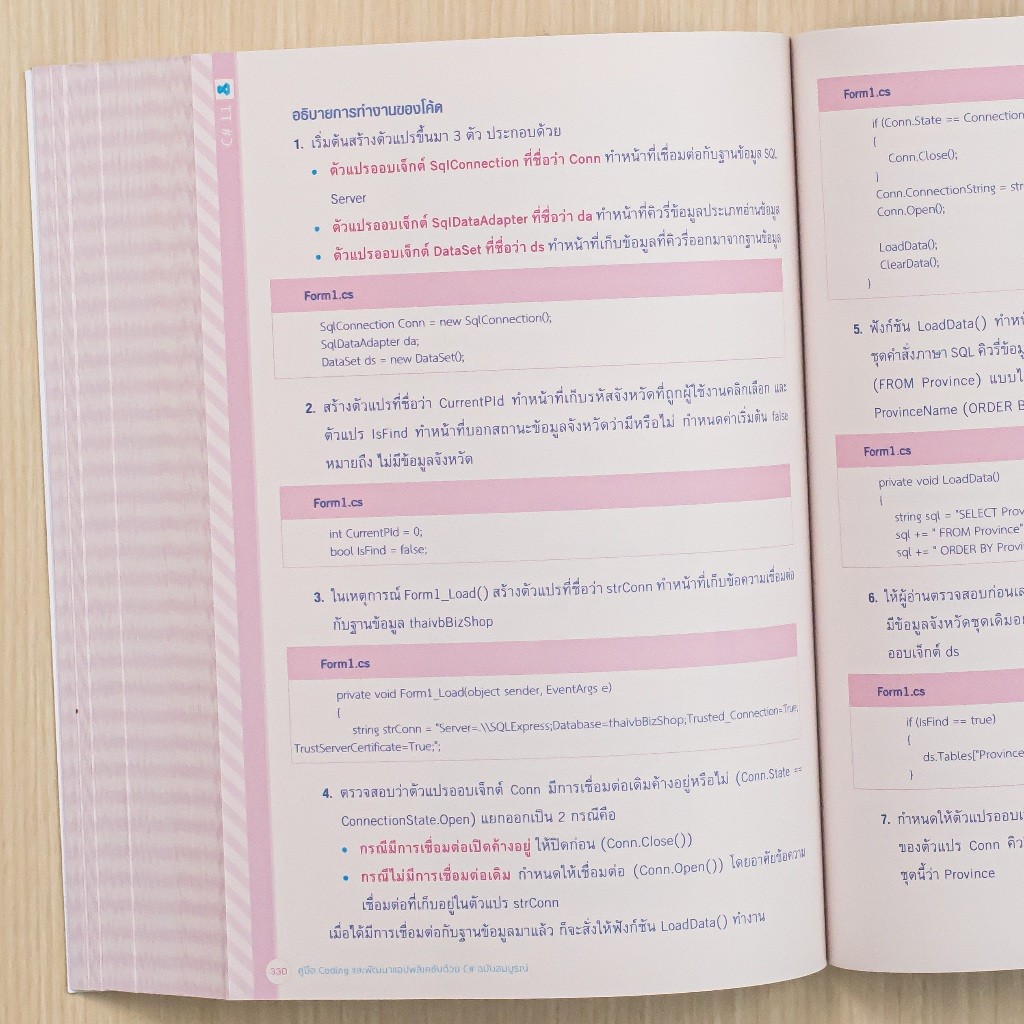 C# 11
อธิบายการทำงานของโค้ด
1. เริ่มต้นสร้างตัวแปรขึ้นมา 3 ตัว ประกอบด้วย
• ตัวแปรออบเจ็กต์ SqlConnection ที่ชื่อว่า Conn ทำหน้าที่เชื่อมต่อกับฐานข้อมูล SQL
Server
• ตัวแปรออบเจ็กต์ SqlDataAdapter ที่ชื่อว่า da ทำหน้าที่คิวรี่ข้อมูลประเภทอ่านข้อมูล
• ตัวแปรออบเจ็กต์ DataSet ที่ชื่อว่า ds ทำหน้าที่เก็บข้อมูลที่คิวรี่ออกมาจากฐานข้อมูล
Form1.cs
SqlConnection Conn = new SqlConnection();
SqlDataAdapter da;
DataSet ds = new DataSet();
2. สร้างตัวแปรที่ชื่อว่า CurrentPId ทำหน้าที่เก็บรหัสจังหวัดที่ถูกผู้ใช้งานคลิกเลือก และ
ตัวแปร IsFind ทำหน้าที่บอกสถานะข้อมูลจังหวัดว่ามีหรือไม่ กำหนดค่าเริ่มต้น false
หมายถึง ไม่มีข้อมูลจังหวัด
Form1.cs
int CurrentPId = 0;
bool IsFind = false;
3. ในเหตุการณ์ Form1_Load() สร้างตัวแปรที่ชื่อว่า strConn ทำหน้าที่เก็บข้อความเชื่อมต่อ
กับฐานข้อมูล thaivbBizShop
Form1.cs
private void Form1_Load(object sender, EventArgs e)
{
string strConn = "Server=.\\SQLExpress;Database=thaivbBizShop;Trusted_Connection=True;
TrustServerCertificate=True;";
4. ตรวจสอบว่าตัวแปรออบเจ็กต์ Conn มีการเชื่อมต่อเดิมค้างอยู่หรือไม่ (Conn.State ==
ConnectionState.Open) แยกออกเป็น 2 กรณีคือ
• กรณีมีการเชื่อมต่อเปิดค้างอยู่ ให้ปิดก่อน (Conn.Close())
• กรณีไม่มีการเชื่อมต่อเดิม กำหนดให้เชื่อมต่อ (Conn.Open()) โดยอาศัยข้อความ
เชื่อมต่อที่เก็บอยู่ในตัวแปร strConn
เมื่อได้มีการเชื่อมต่อกับฐานข้อมูลมาแล้ว ก็จะสั่งให้ฟังก์ชัน LoadData() ทำงาน
330 คู่มือ Coding และพัฒนาแอปพลิเคชันด้วย C# ฉบับสมบูรณ์
Form1.cs
if (Conn.State == Connection
{
Conn.Close();
}
Conn.ConnectionString = str
Conn.Open();
LoadData();
ClearData();
}
5. ฟังก์ชัน LoadData()
ชุดคำสั่งภาษา SQL คิวรี่ข้อมู
(FROM Province) แบบ
ProvinceName (ORDER B
Form1.cs
private void LoadData()
{
string sql = "SELECT Prov
sql += " FROM Province"
sql += " ORDER BY Provi
6. ให้ผู้อ่านตรวจสอบก่อน
มีข้อมูลจังหวัดชุดเดิม
ออบเจ็กต์ ds
Form1.cs
if (IsFind == true)
{
ds.Tables["Province
}
7. กำหนดให้ตัวแปรออบ
ของตัวแปร Conn
ชุดนี้ว่า Province